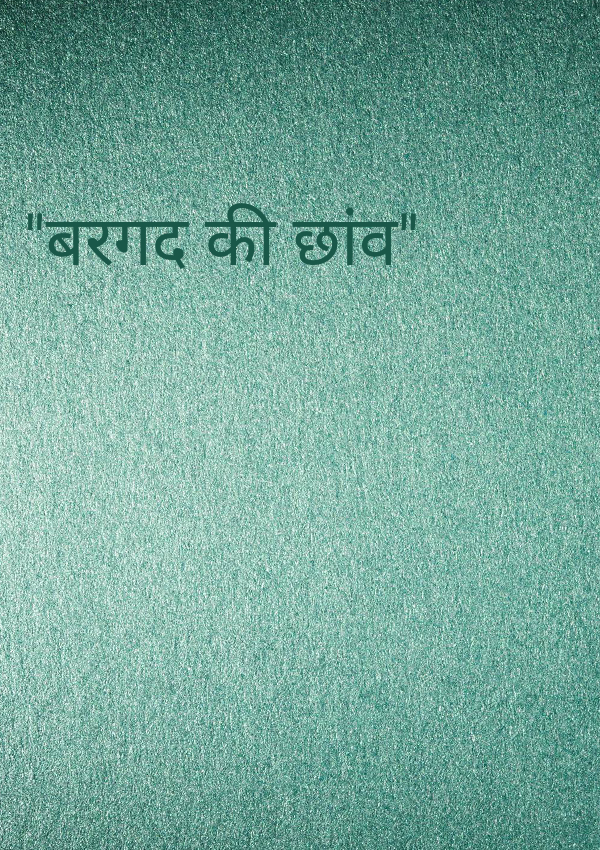 "बरगद की छांव"